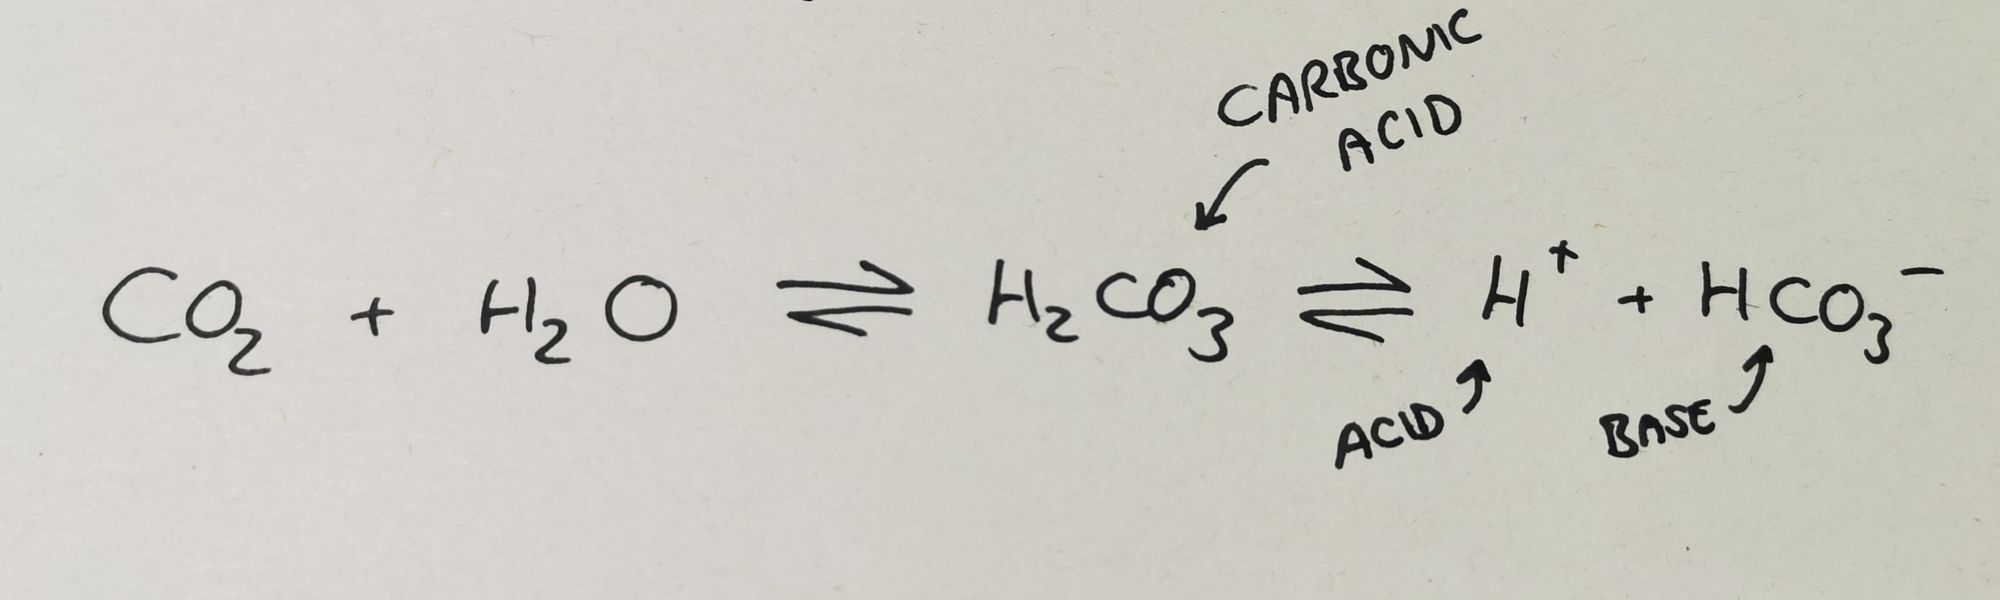 CARBONIC
ACID
CO₂ + H₂O ⇌ H₂CO₃ ⇌ H⁺ + HCO₃⁻
ACID BASE